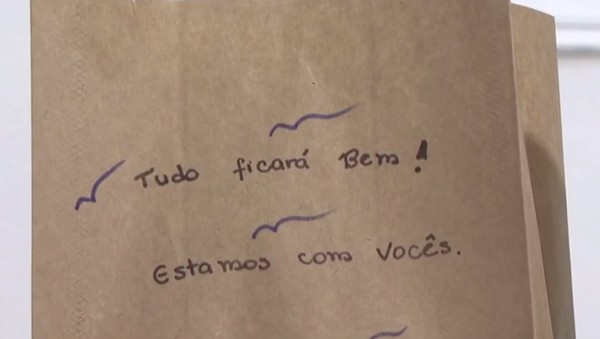 Tudo ficará Bem!
Estamos com Vocês.